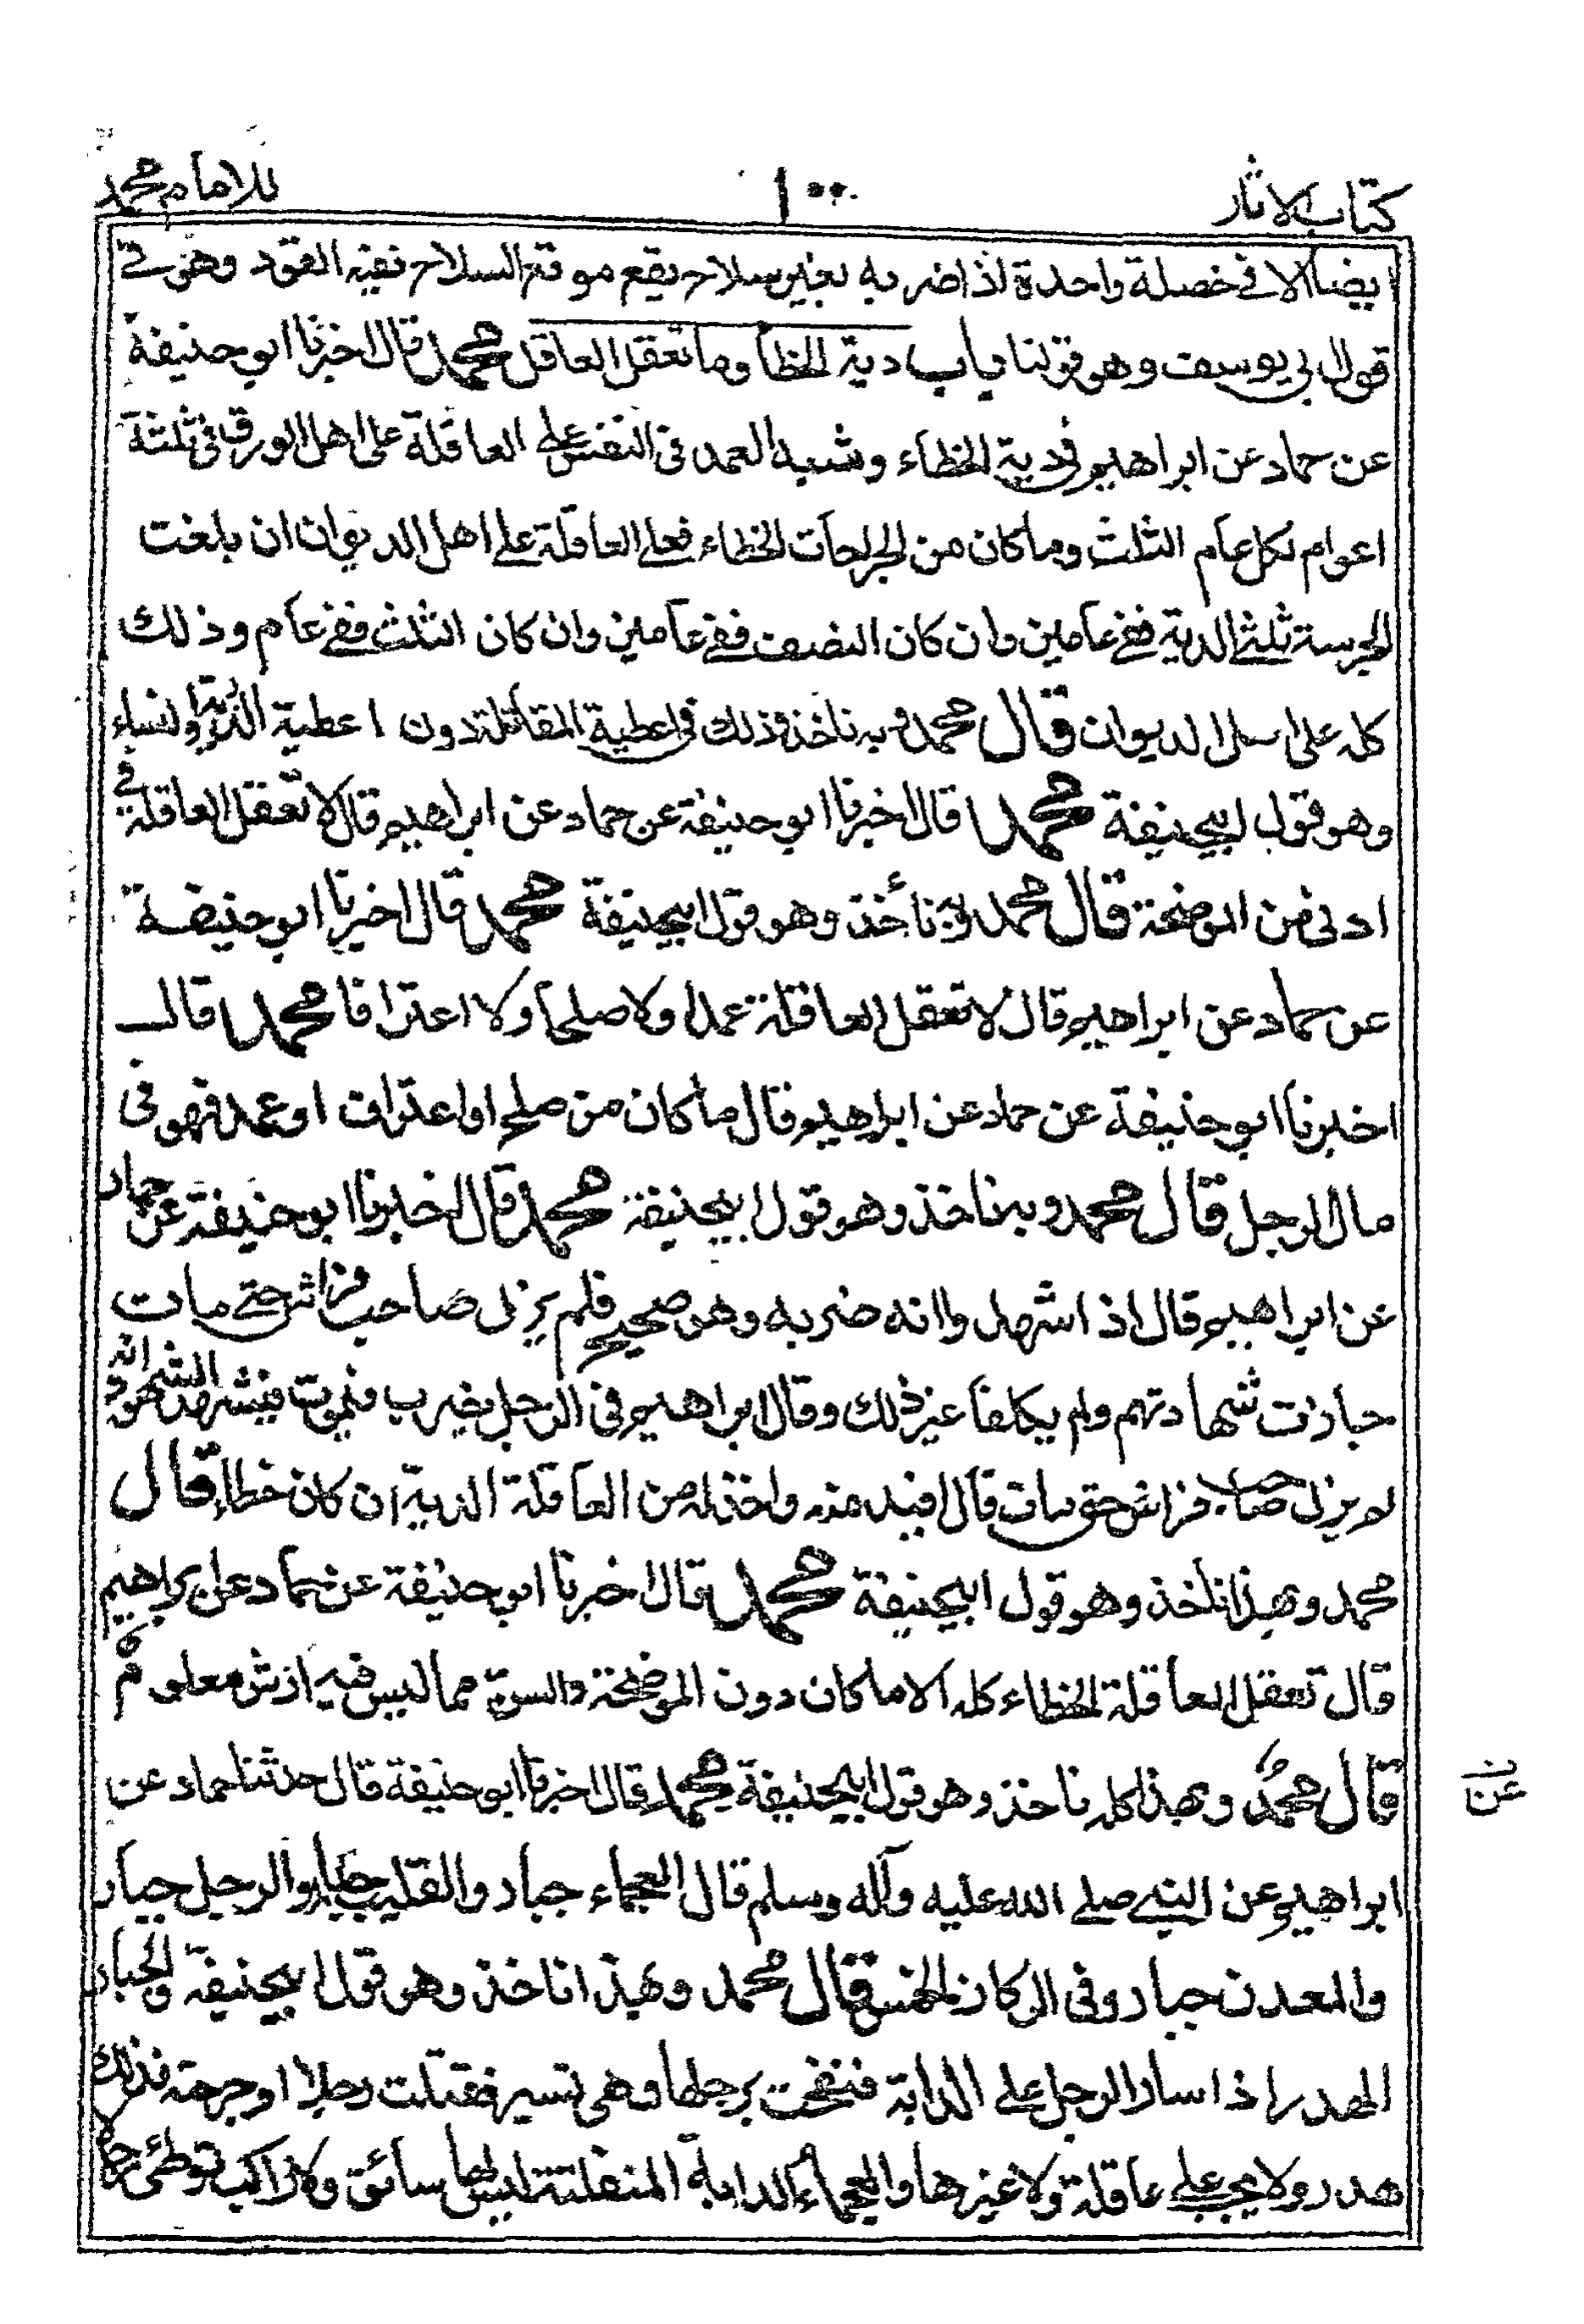 كتاب الاثار
١٠٠
للامام محمد
ايضا الا في خصلة واحدة اذا ضربه بغير سلاح يقع موقع السلاح ففيه القود وهو في
قول ابي يوسف وهو قولنا باب دية الخطأ وما تعقل العاقل محمد قال اخبرنا ابو حنيفة
عن حماد عن ابراهيم في دية الخطاء وشبه العمد في النفس على العاقلة على اهل الورق في ثلثة
اعوام لكل عام الثلث وما كان من الجراحات الخطاء فعلى العاقلة على اهل الديوان ان بلغت
الجرسة ثلثي الدية ففي عامين وان كان النصف ففي عامين وان كان الثلث ففي عام وذلك
كله على اهل الديوان قال محمد وبه ناخذ وذلك في اعطية المقاتلة دون اعطية الذرية والنساء
وهو قول ابيحنيفة محمد قال اخبرنا ابو حنيفة عن حماد عن ابراهيم قال لا تعقل العاقلة في
ادنى من الموضحة قال محمد وبه نأخذ وهو قول ابيحنيفة محمد قال اخبرنا ابو حنيفة
عن حماد عن ابراهيم قال لا تعقل العاقلة عمدا ولا صلحا ولا اعترافا محمد قال
اخبرنا ابو حنيفة عن حماد عن ابراهيم قال ما كان من صلح او اعتراف او عمد فهو في
مال الرجل قال محمد وبه ناخذ وهو قول ابيحنيفة محمد قال اخبرنا ابو حنيفة عن حماد
عن ابراهيم قال اذا شهدوا انه ضربه وهو صحيح فلم يزل صاحب فراش حتى مات
جازت شهادتهم ولم يكلفا غير ذلك وقال ابراهيم في الرجل يضرب فيموت فيشهد الشهود انه
لم يزل صاحب فراش حتى مات قال اقيد منه واخذ له من العاقلة الدية ان كان خطاء قال
محمد وبهذا ناخذ وهو قول ابيحنيفة محمد قال اخبرنا ابو حنيفة عن حماد عن ابراهيم
قال تعقل العاقلة الخطاء كله الا ما كان دون الموضحة والسن مما ليس فيه ارش معلوم
قال محمد وبهذا كله ناخذ وهو قول ابيحنيفة محمد قال اخبرنا ابو حنيفة قال حدثنا حماد عن
عن
ابراهيم عن النبي صلى الله عليه وآله وسلم قال العجماء جبار والقليب جبار والرجل جبار
والمعدن جبار وفي الركاز الخمس قال محمد وبهذا ناخذ وهو قول ابيحنيفة والجبار
الهدر اذا سار الرجل على الدابة فنفحت برجلها وهي تسير فقتلت رجلا او جرحته فذلك
هدر ولا يجب على عاقلة ولا غيرها والعجماء الدابة المنفلتة ليس لها سائق ولا راكب توطئ رجلا